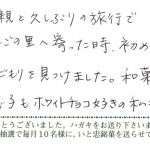 親と久しぶりの旅行で
ごの里へ寄った時、初め
ごもりを見つけました。和菓
子もホワイトチョコ好きの私
とうございました。ハガキをお送り下さいま
抽選で毎月10名様に、いと忠銘菓を送らせて